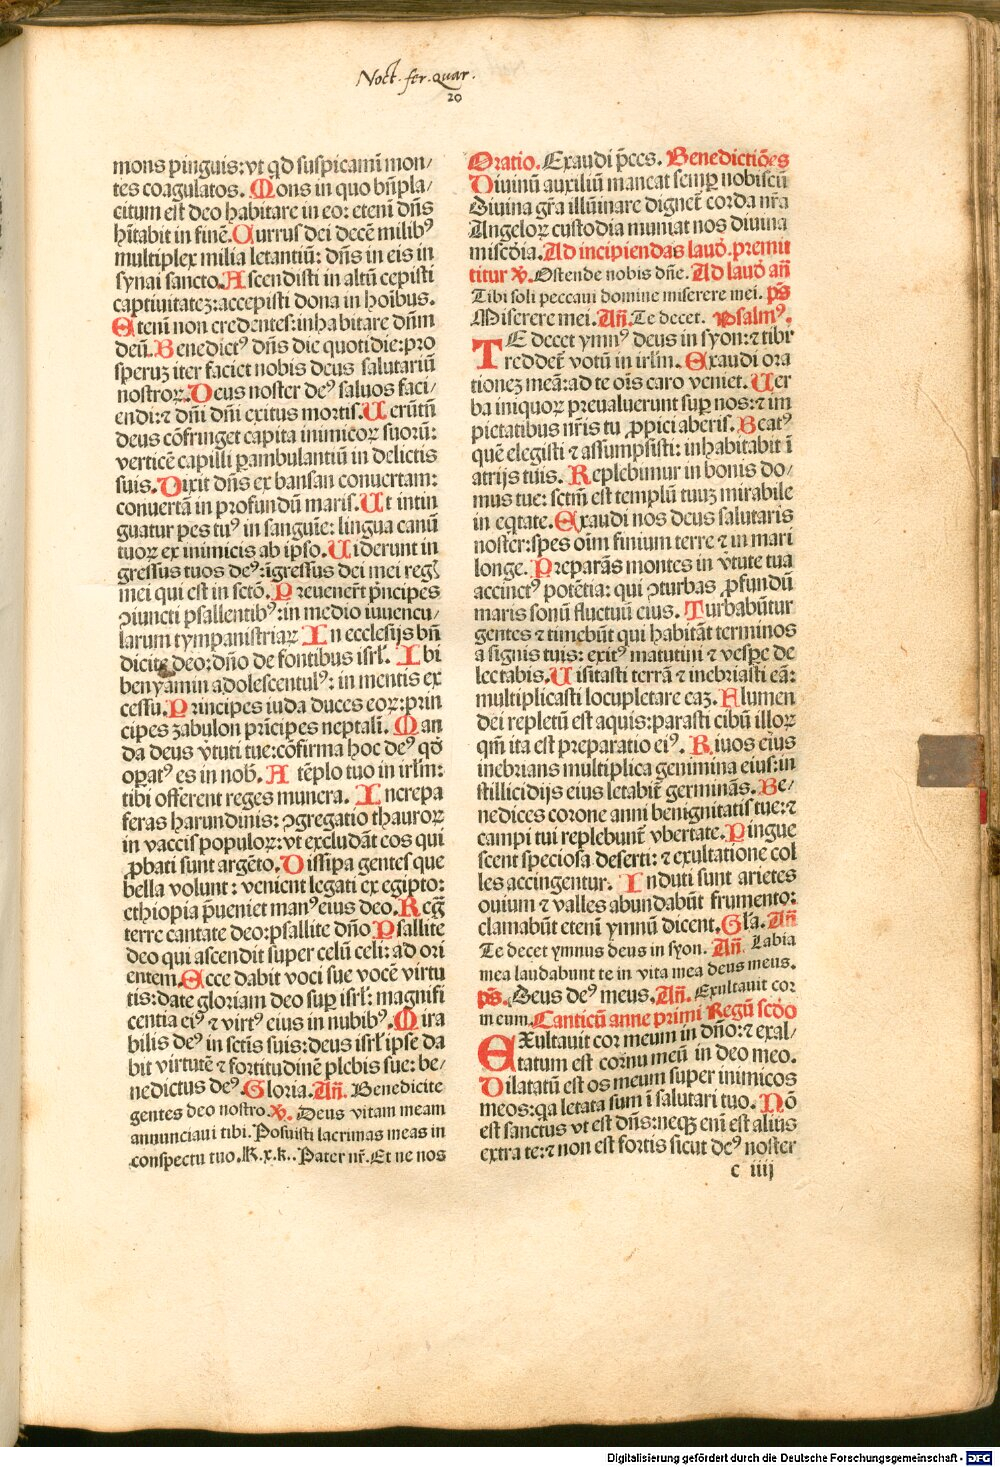 Noct. fer. quar.
20
mons pinguis: vt qd suspicamī mon/
tes coagulatos. Mons in quo bñpla/
citum est deo habitare in eo: etenī dñs
hītabit in finē. Currus dei decē milibꝰ
multiplex milia letantiū: dñs in eis in
synai sancto. Ascendisti in altū cepisti
captiuitatez: accepisti dona in hoībus.
Etenī non credentes: inhabitare dñm
deū. Benedictꝰ dñs die quotidie: pro
speruz iter faciet nobis deus salutariū
nostroꝝ. Deus noster deꝰ saluos faci/
endi: ⁊ dñi dñi exitus mortis. Uerūtñ
deus cōfringet capita inimicoꝝ suorū:
verticē capilli ꝑambulantiū in delictis
suis. Dixit dñs ex bansan conuertam:
conuertā in profundū maris. Ut intin
guatur pes tuꝰ in sanguīe: lingua canū
tuoꝝ ex inimicis ab ipso. Uiderunt in
gressus tuos deꝰ: īgressus dei mei regꝭ
mei qui est in sctō. Preuenert̄ pncipes
ꝯiuncti psallentibꝰ: in medio iuuencu/
larum tympanistriaꝝ In ecclesijs bñ
dicite deo: dño de fontibus isrl̄. Ibi
benyamin adolescentulꝰ: in mentis ex
cessu. Principes iuda duces eoꝝ: prin
cipes zabulon prīcipes neptali. Man
da deus v̄tuti tue: cōfirma hoc deꝰ qd̄
oꝑatꝰ es in nob. A tēplo tuo in irl̄m:
tibi offerent reges munera. Increpa
feras harundinis: ꝯgregatio thauroꝝ
in vaccis populoꝝ: vt excludāt eos qui
ꝓbati sunt argēto. Dissipa gentes que
bella volunt: venient legati ex egipto:
ethiopia p̄ueniet manꝰ eius deo. Regꝗ̄
terre cantate deo: psallite dño Psallite
deo qui ascendit super celū celi: ad ori
entem. Ecce dabit voci sue vocē virtu
tis: date gloriam deo suꝑ isrl̄: magnifi
centia eiꝰ ⁊ virtꝰ eius in nubibꝰ. Mira
bilis deꝰ in sctis suis: deus isrl̄ ipse da
bit virtutē ⁊ fortitudinē plebis sue: be/
nedictus deꝰ. Gloria. Añ. Benedicite
gentes deo nostro. ℣. Deus vitam meam
annunciaui tibi. Posuisti lacrimas meas in
conspectu tuo. K. x. k.. Pater nr̄. Et ne nos
Oratio. Exaudi p̄ces. Benedictiōes
Diuinū auxiliū maneat semꝑ nobiscū
Diuina gr̄a illūinare dignet̄ corda nr̄a
Angeloꝝ custodia muniat nos diuina
misc̄dia. Ad incipiendas laud̄. premit
titur ℣. Ostende nobis dñe. Ad laud̄ añ
Tibi soli peccaui domine miserere mei. p̄s
Miserere mei. Añ. Te decet. Psalmꝰ.
TE decet ymnꝰ deus in syon: ⁊ tibi
reddet̄ votū in irl̄m. Exaudi ora
tionez meā: ad te oīs caro veniet. Uer
ba iniquoꝝ preualuerunt suꝑ nos: ⁊ im
pietatibus nr̄is tu ꝓpici aberis. Beatꝰ
quē elegisti ⁊ assumpsisti: inhabitabit ī
atrijs tuis. Replebimur in bonis do/
mus tue: sctm̄ est templū tuuz mirabile
in eqtate. Exaudi nos deus salutaris
noster: spes oīm finium terre ⁊ in mari
longe. Preparās montes in v̄tute tua
accinctꝰ potētia: qui ꝯturbas ꝓfundū
maris sonū fluctuū eius. Turbabūtur
gentes ⁊ timebūt qui habitāt terminos
a signis tuis: exitꝰ matutini ⁊ vesꝑe de
lectabis. Uisitasti terrā ⁊ inebriasti eā:
multiplicasti locupletare eaz. Flumen
dei repletū est aquis: parasti cibū illoꝝ
qm̄ ita est preparatio eiꝰ. Riuos eius
inebrians multiplica genimina eius: in
stillicidijs eius letabit̄ germinās. Be/
nedices corone anni benignitatis tue: ⁊
campi tui replebunt̄ vbertate. Pingue
scent speciosa deserti: ⁊ exultatione col
les accingentur. Induti sunt arietes
ouium ⁊ valles abundabūt frumento:
clamabūt eteni ymnū dicent. Gl̄a. Añ
Te decet ymnus deus in syon. Añ. Labia
mea laudabunt te in vita mea deus meus.
p̄s. Deus deꝰ meus. Añ. Exultauit cor
meum. Canticū anne primi Regū sc̄do
EXultauit cor meum in dño: ⁊ exal/
tatum est cornu meū in deo meo.
Dilatatū est os meum super inimicos
meos: qa letata sum ī salutari tuo. Nō
est sanctus vt est dñs: neqꝫ eni est alius
extra te: ⁊ non est fortis sicut deꝰ noster
c iiij
Digitalisierung gefördert durch die Deutsche Forschungsgemeinschaft - DFG